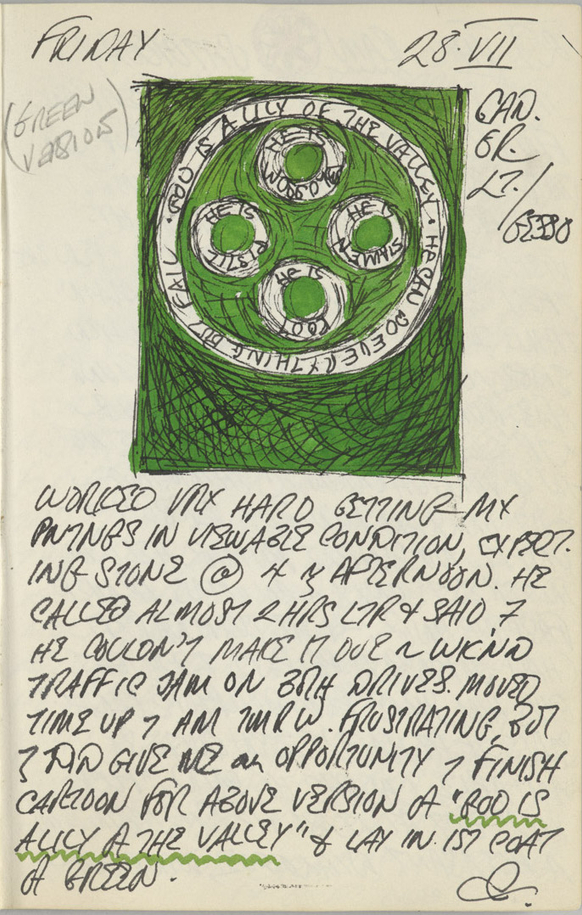 FRIDAY
28·VII
(GREEN
VERSION)
CAD.
GR.
LT./
GESSO
GOD IS A LILY OF THE VALLEY · HE CAN DO EVERYTHING BUT FAIL ·
HE IS
HE IS
PISTIL
HE IS
STAMEN
HE IS
ROOT
WORKED VRY HARD GETTING MY
PNTNGS IN VIEWABLE CONDITION, EXPECT-
ING STONE @ 4 AFTERNOON. HE
CALLED ALMOST 2 HRS LTR & SAID
HE COULDN'T MAKE IT DUE WK'ND
TRAFFIC JAM ON DRIVES. MOVED
TIME UP AM TMRW. FRUSTRATING, BUT
DID GIVE ME an OPPORTUNITY FINISH
CARTOON FOR ABOVE VERSION "GOD IS
A LILY THE VALLEY" & LAY IN 1ST COAT
GREEN.